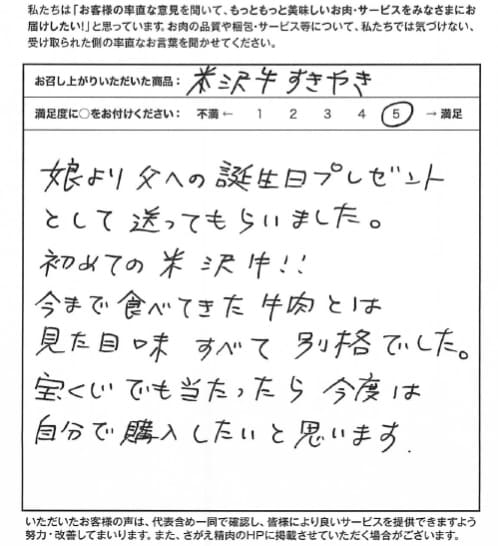 私たちは「お客様の率直な意見を聞いて、もっともっと美味しいお肉・サービスをみなさまにお
届けしたい!」と思っています。お肉の品質や梱包・サービス等について、私たちでは気づけない、
受け取られた側の率直なお言葉を聞かせてください。
お召し上がりいただいた商品： 米沢牛すきやき
満足度に○をお付けください： 不満 ← 1 2 3 4 5 → 満足
娘より父への誕生日プレゼント
として送ってもらいました。
初めての米沢牛!!
今まで食べてきた牛肉とは
見た目味すべて別格でした。
宝くじでも当たったら今度は
自分で購入したいと思います.
いただいたお客様の声は、代表含め一同で確認し、皆様により良いサービスを提供できますよう
努力・改善してまいります。また、さがえ精肉のHPに掲載させていただく場合がございます。